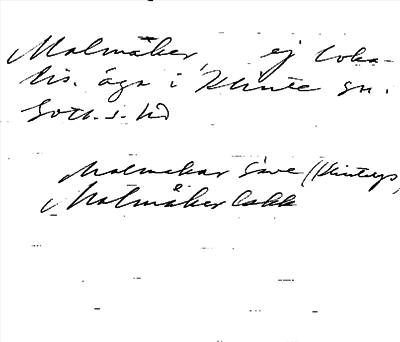 Malmåker, ej loka-
lis. äga i Klinte sn.
Gotl. s. hd
Malmakar Save (Klintegs)
Malmåker